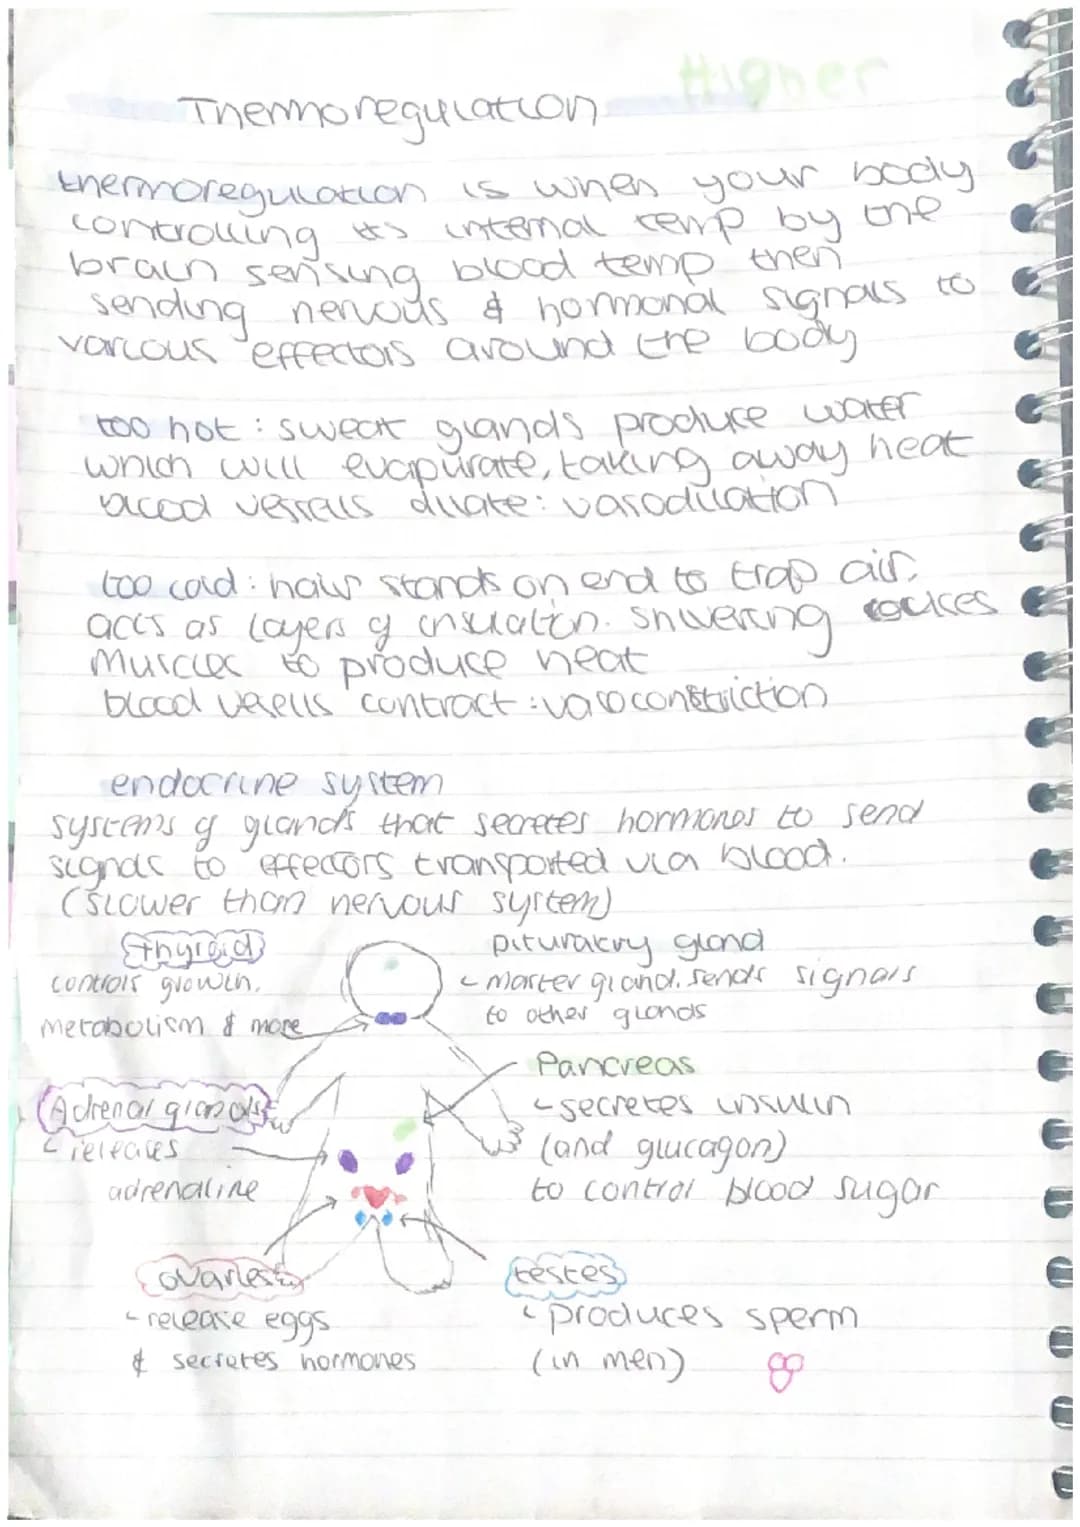 Higher
Thermoregulation
thermoregulation is when your body
controlling its internal temp by the
brain sensing blood temp then
sending nervous & hormonal signals to
various effectors around the body
too hot: sweat glands produce water
which will evapurate, taking away heat
blood vessells dilate: vasodilation
too cold: hair stands on end to trap air.
acts as layers of insulation. Shivering
muscles to produce heat
blood vesells contract: vasoconstriction
endocrine system
systems of glands that secretes hormones to send
signals to effectors transported via blood.
(slower than nervous system)
thyroid
controls growth,
metabolism & more
pituratry gland
master gland. sends signals
to other glands
Pancreas
secretes insulin
(and glucagon)
to control blood sugar
Adrenal glands
releases
adrenaline
ovaries
release eggs
& secretes hormones
testes
produces sperm
(in men)